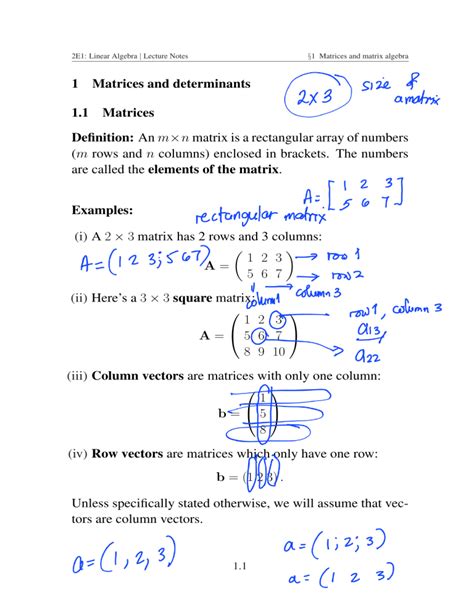 2E1: Linear Algebra | Lecture Notes §1 Matrices and matrix algebra
1 Matrices and determinants
2x3 size of a matrix
1.1 Matrices
Definition: An m×n matrix is a rectangular array of numbers
(m rows and n columns) enclosed in brackets. The numbers
are called the elements of the matrix.
A= [ 1 2 3
5 6 7 ]
Examples:
rectangular matrix.
(i) A 2 × 3 matrix has 2 rows and 3 columns:
A=(1 2 3; 5 6 7)
A = ( 1 2 3 → row 1
5 6 7 ) → row 2
column 1 column 3
(ii) Here's a 3 × 3 square matrix:
row 1, column 3
a13
A = ( 1 2 3
5 6 7
8 9 10 )
a22
(iii) Column vectors are matrices with only one column:
b = ( 1
5
8 )
(iv) Row vectors are matrices which only have one row:
b = (1 2 3) .
Unless specifically stated otherwise, we will assume that vec-
tors are column vectors.
a=(1, 2, 3)
a=(1; 2; 3)
a=(1 2 3)
1.1